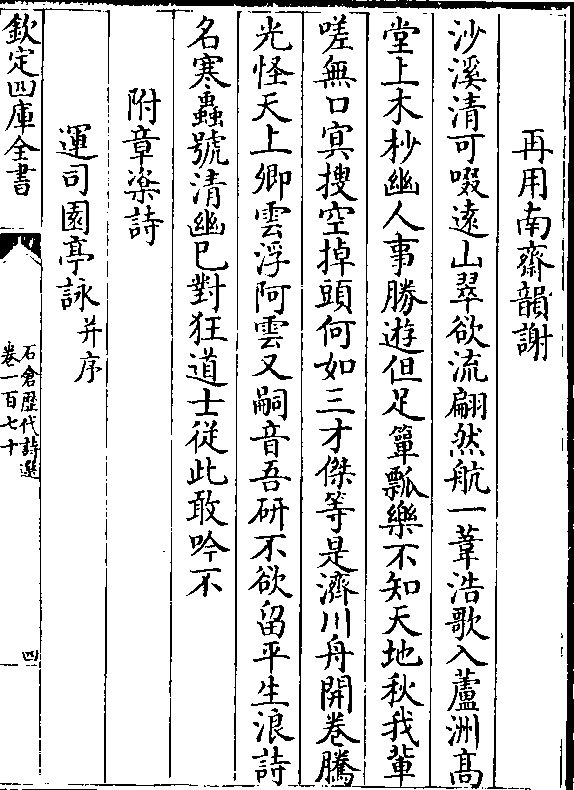 再用南齋韻謝
沙溪清可啜遠山翠欲流翩然航一葦浩歌入蘆洲高
堂上木杪幽人事勝遊但足簞瓢樂不知天地秋我輩
嗟無口寘搜空掉頭何如三才傑等是濟川舟開卷騰
光怪天上卿雲浮阿雲又嗣音吾研不欲留平生浪詩
名寒蟲號清幽已對狂道士從此敢吟不
附章楶詩
運司園亭詠并序
欽定四庫全書
石倉歷代詩選
卷一百七十
四